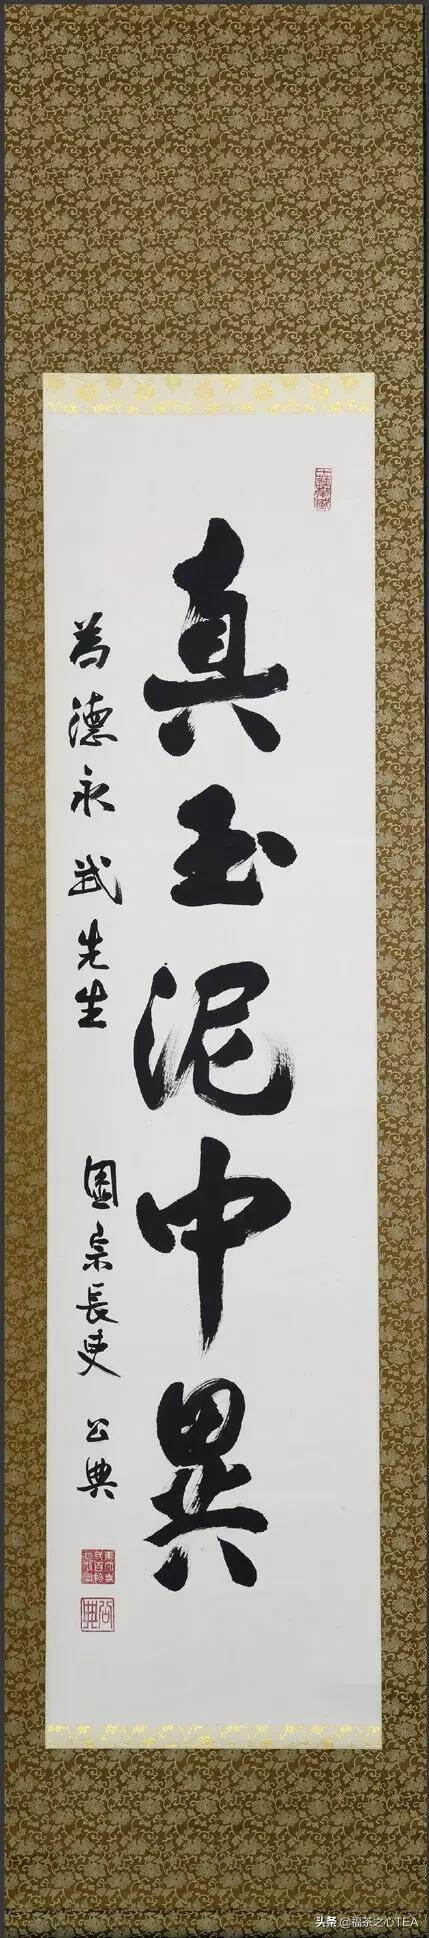 真玉泥中異
為徳永武先生
圓宗長吏 公典
头条 @福茶之心TEA